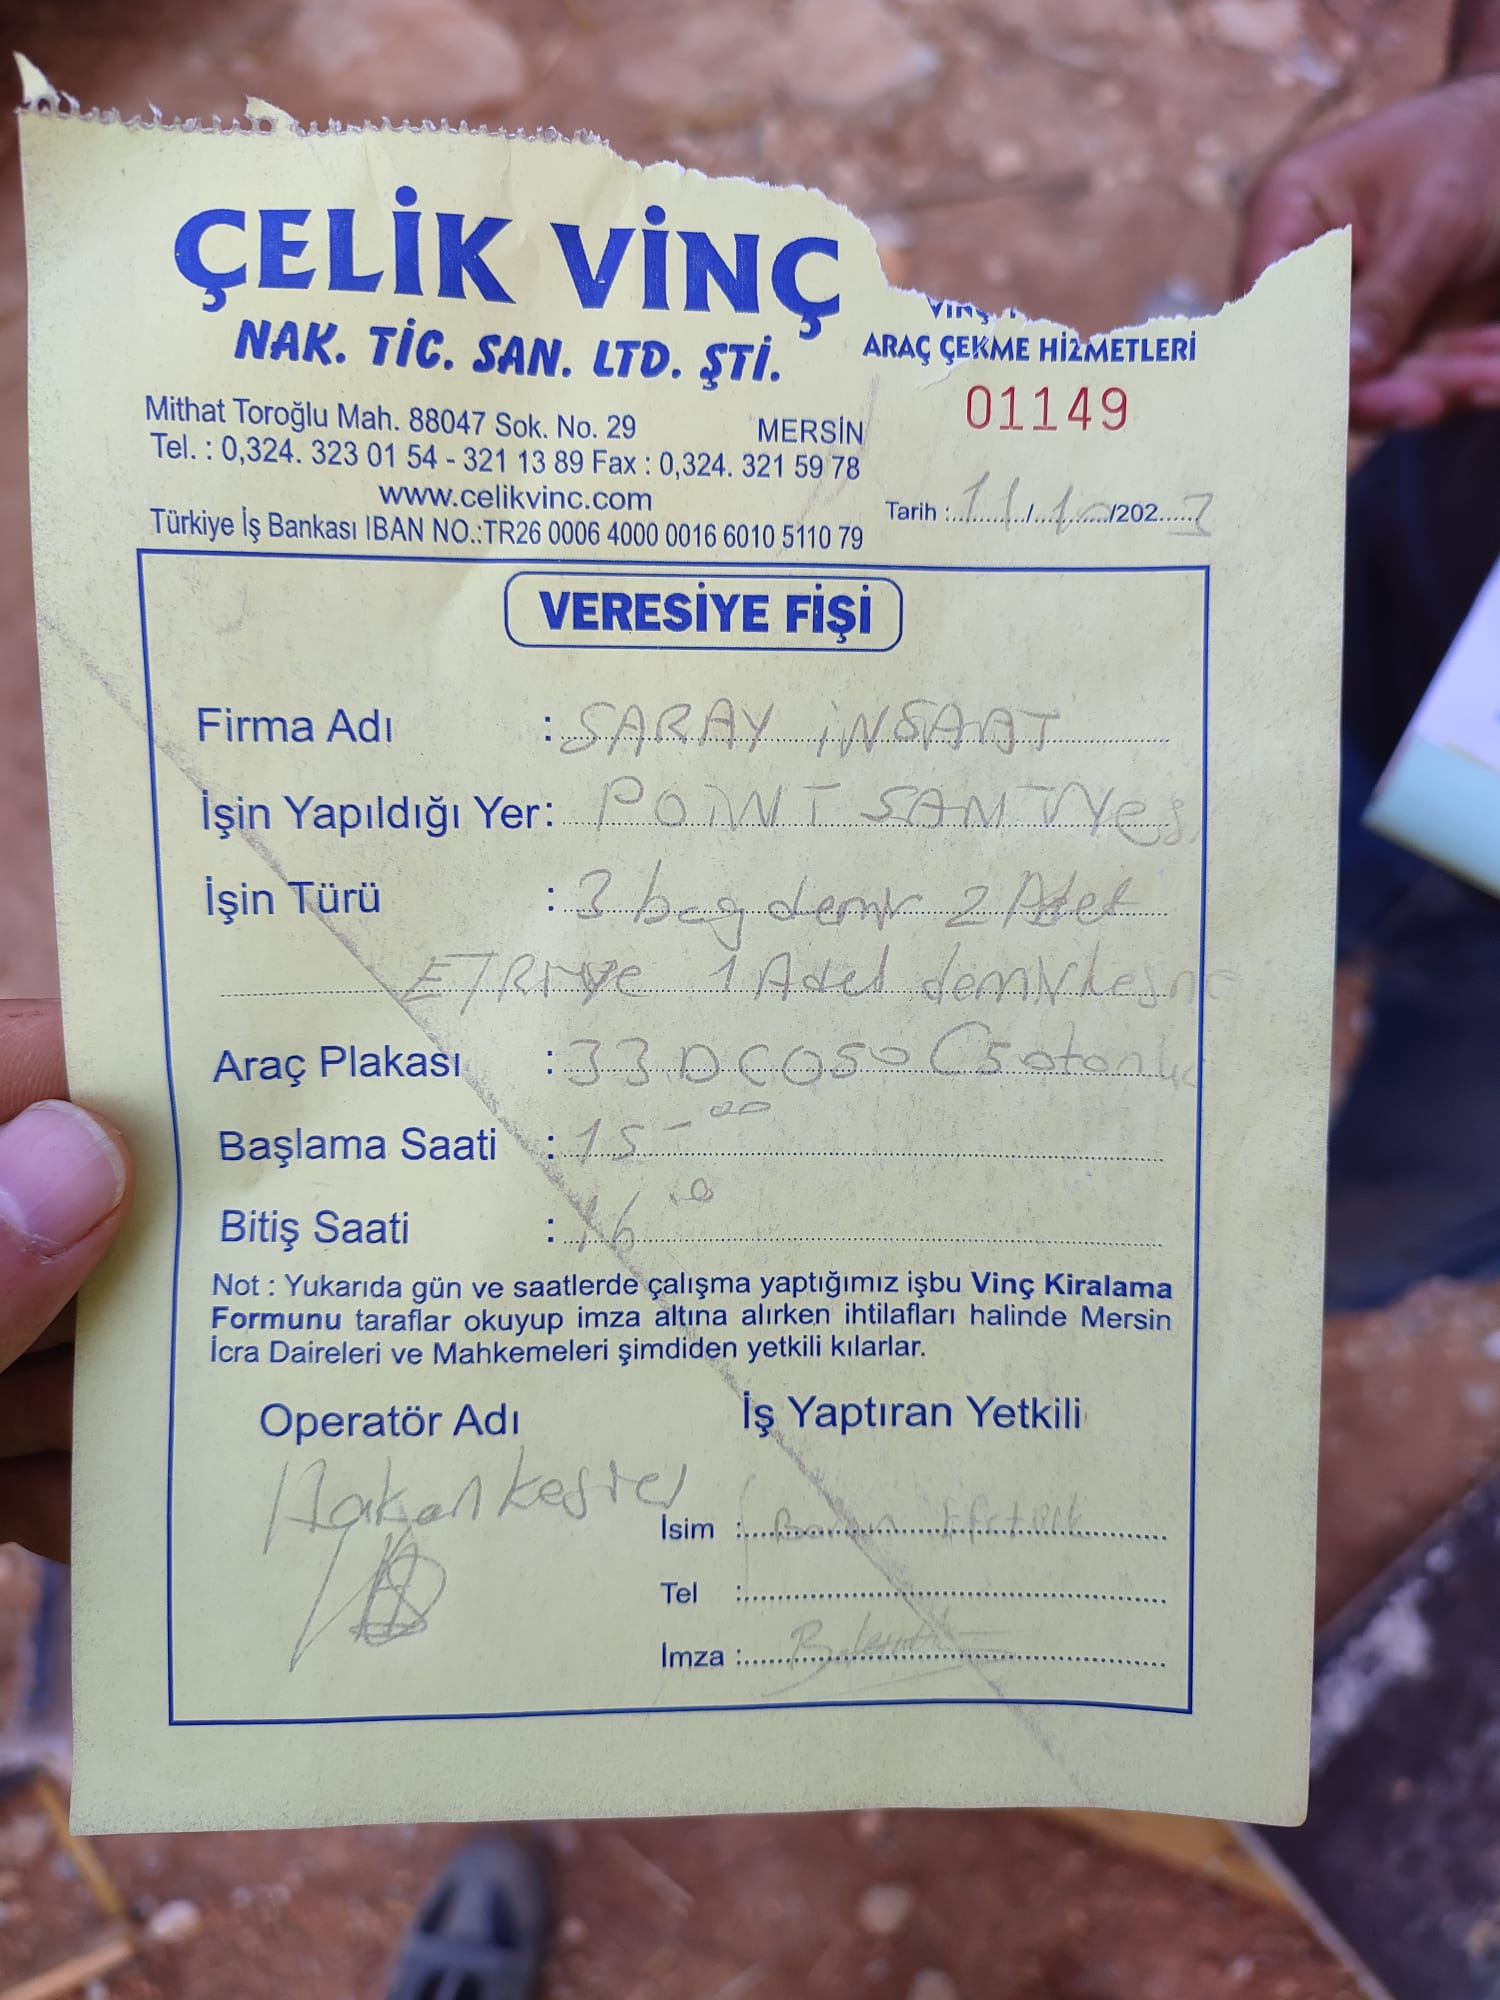 ÇELİK VİNÇ
NAK. TİC. SAN. LTD. ŞTİ.
VİNÇ
ARAÇ ÇEKME HİZMETLERİ
01149
Mithat Toroğlu Mah. 88047 Sok. No. 29 MERSİN
Tel. : 0,324. 323 01 54 - 321 13 89 Fax : 0,324. 321 59 78
www.celikvinc.com
Türkiye İş Bankası IBAN NO.:TR26 0006 4000 0016 6010 5110 79
Tarih : 11/10/2023
VERESİYE FİŞİ
Firma Adı : SARAY İNSAAT
İşin Yapıldığı Yer: POİNT SANTİYES
İşin Türü : 3 bag demir 2 Adet
ETRİYE 1 Adet demir
Araç Plakası : 33 DC 050 (50 tonluk
Başlama Saati : 15-00
Bitiş Saati : 16.0
Not : Yukarıda gün ve saatlerde çalışma yaptığımız işbu Vinç Kiralama
Formunu taraflar okuyup imza altına alırken ihtilafları halinde Mersin
İcra Daireleri ve Mahkemeleri şimdiden yetkili kılarlar.
Operatör Adı
İş Yaptıran Yetkili
Hakan
İsim :
Tel :
İmza :